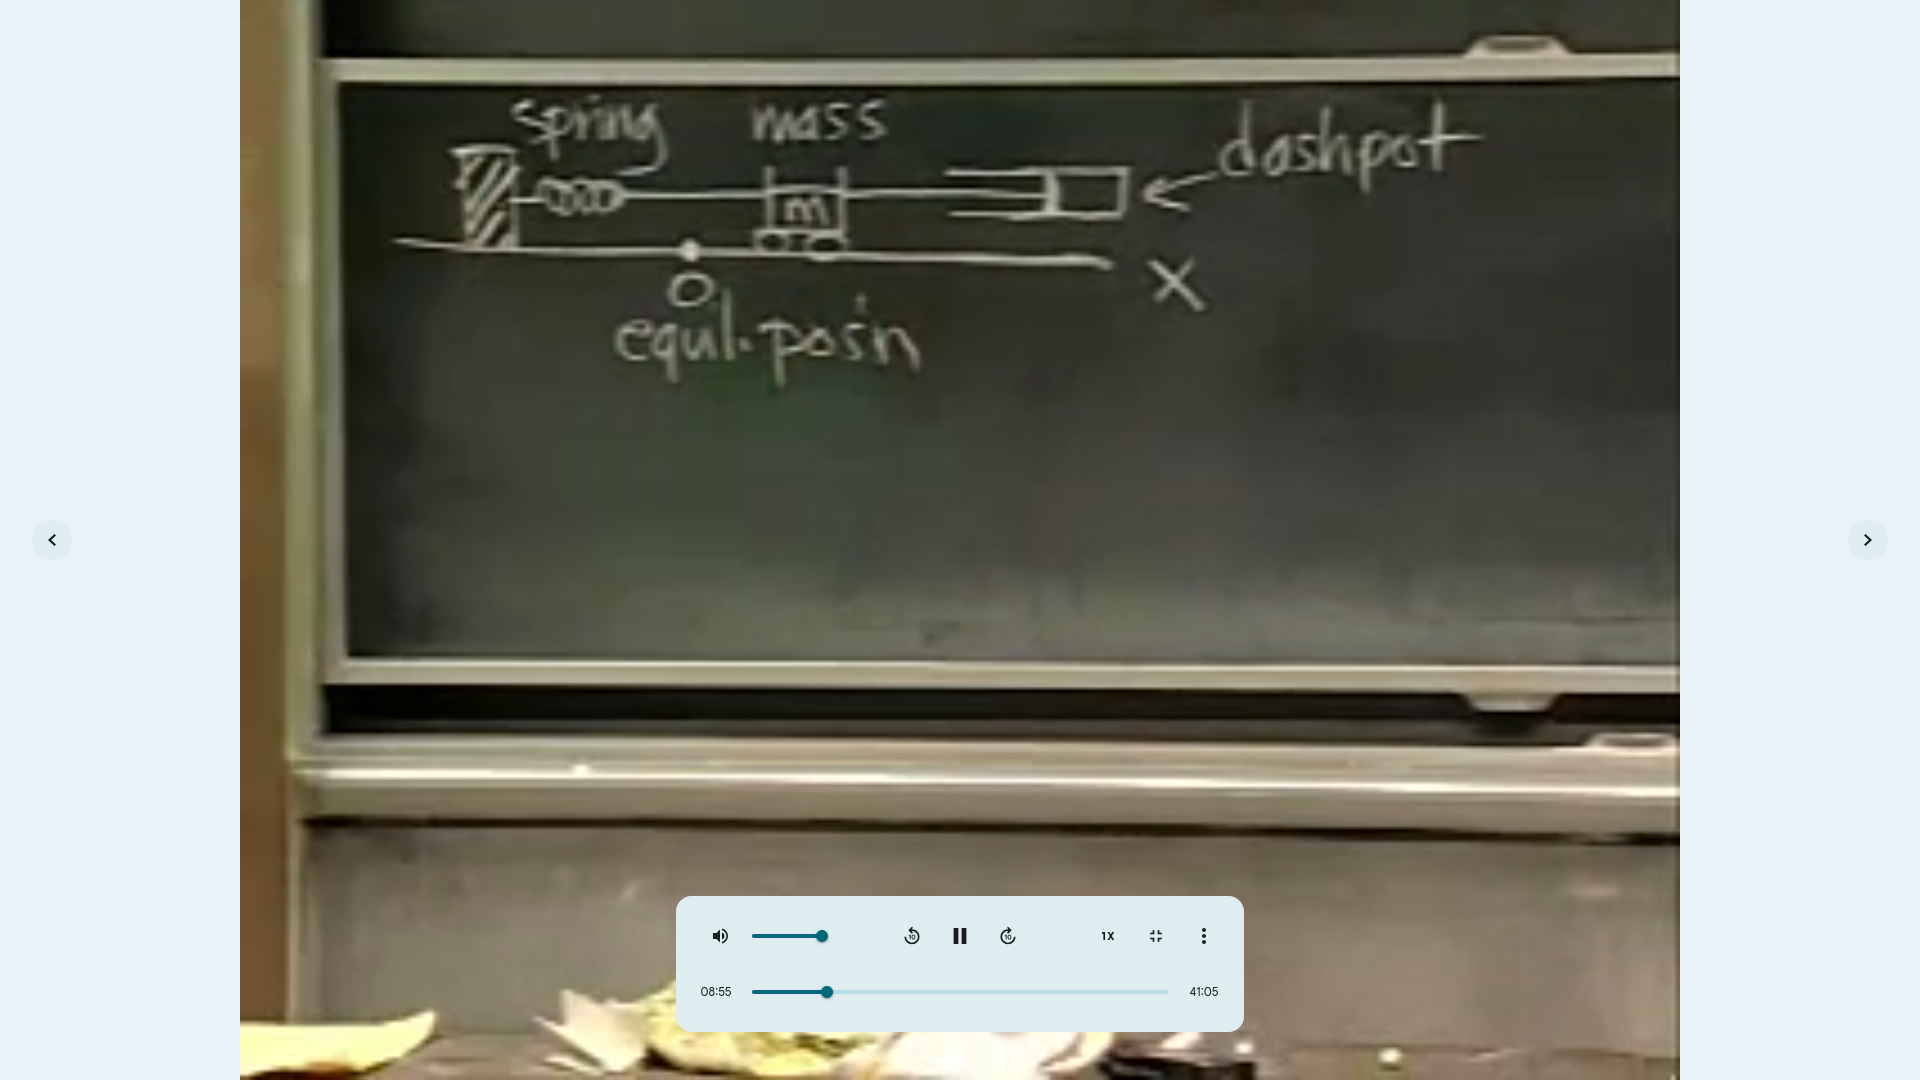 spring mass
dashpot
m
0
x
equl. pos'n
1X
08:55
41:05